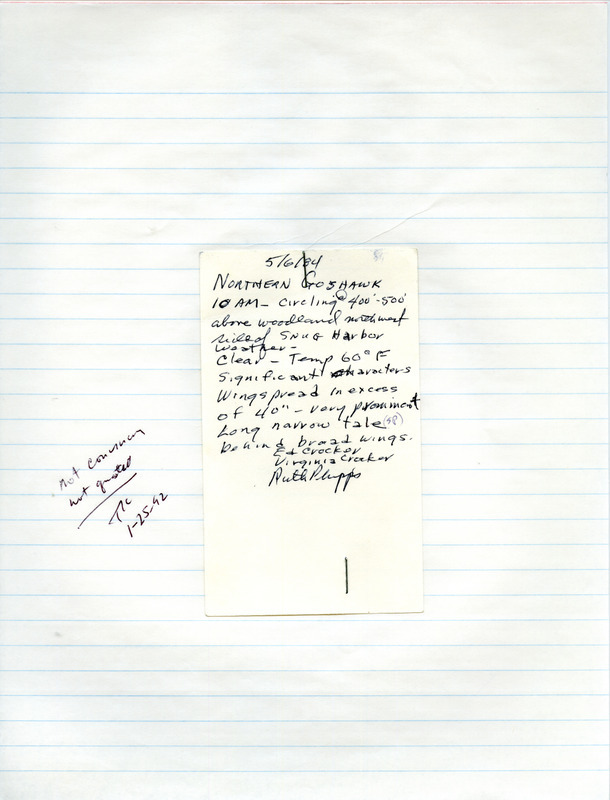 5/6/84
NORTHERN GOSHAWK
10 AM - Circling @ 400'-500'
above woodland northwest
side of Snug Harbor
Weather -
Clear - Temp 60° F
Significant characters
Wingspread in excess
of 40" - very prominent
Long narrow tale (sp)
behind broad wings.
Ed Crocker
Virginia Crocker
Ruth Phipps
Not convincing
not quoted
1-25-92